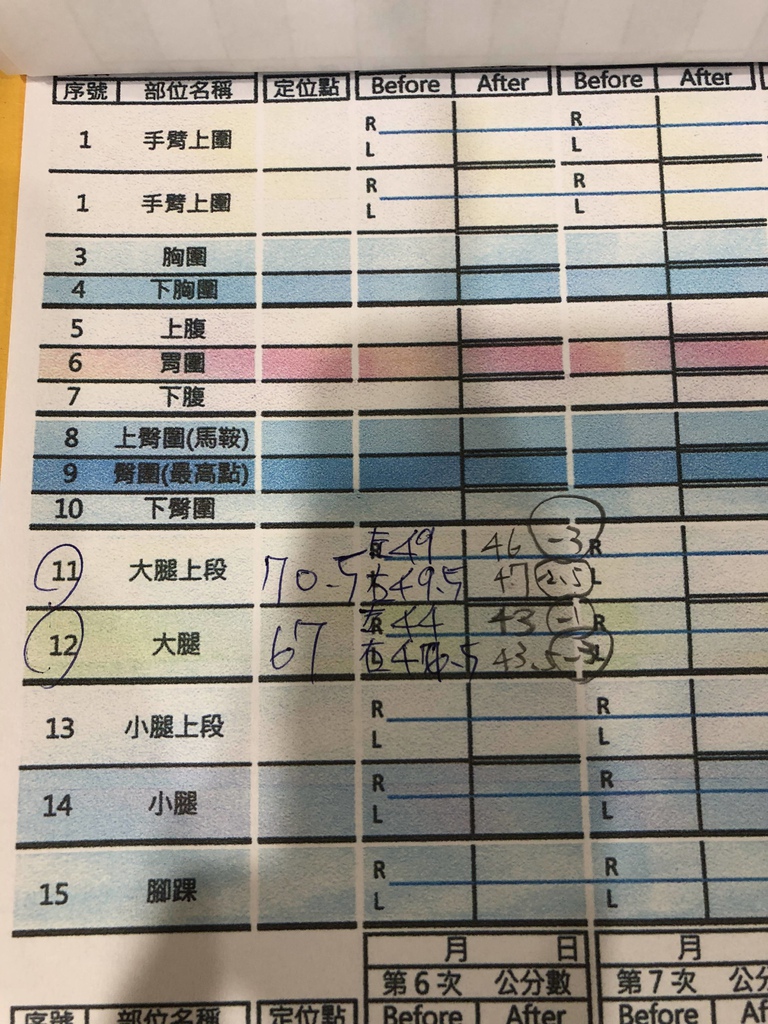 序號 部位名稱 定位點 Before After Before After
1 手臂上圍 R L R L
1 手臂上圍 R L R L
3 胸圍
4 下胸圍
5 上腹
6 胃圍
7 下腹
8 上臀圍(馬鞍)
9 臀圍(最高點)
10 下臀圍
11 大腿上段 70.5 左49 46 -3 R
右49.5 47 -2.5 L
12 大腿 67 左44 43 -1 R
右 43.5 -3 L
13 小腿上段 R L R L
14 小腿 R L R L
15 腳踝 R L R L
月 日 月
第6次 公分數 第7次
序號 部位名稱 定位點 Before After Before